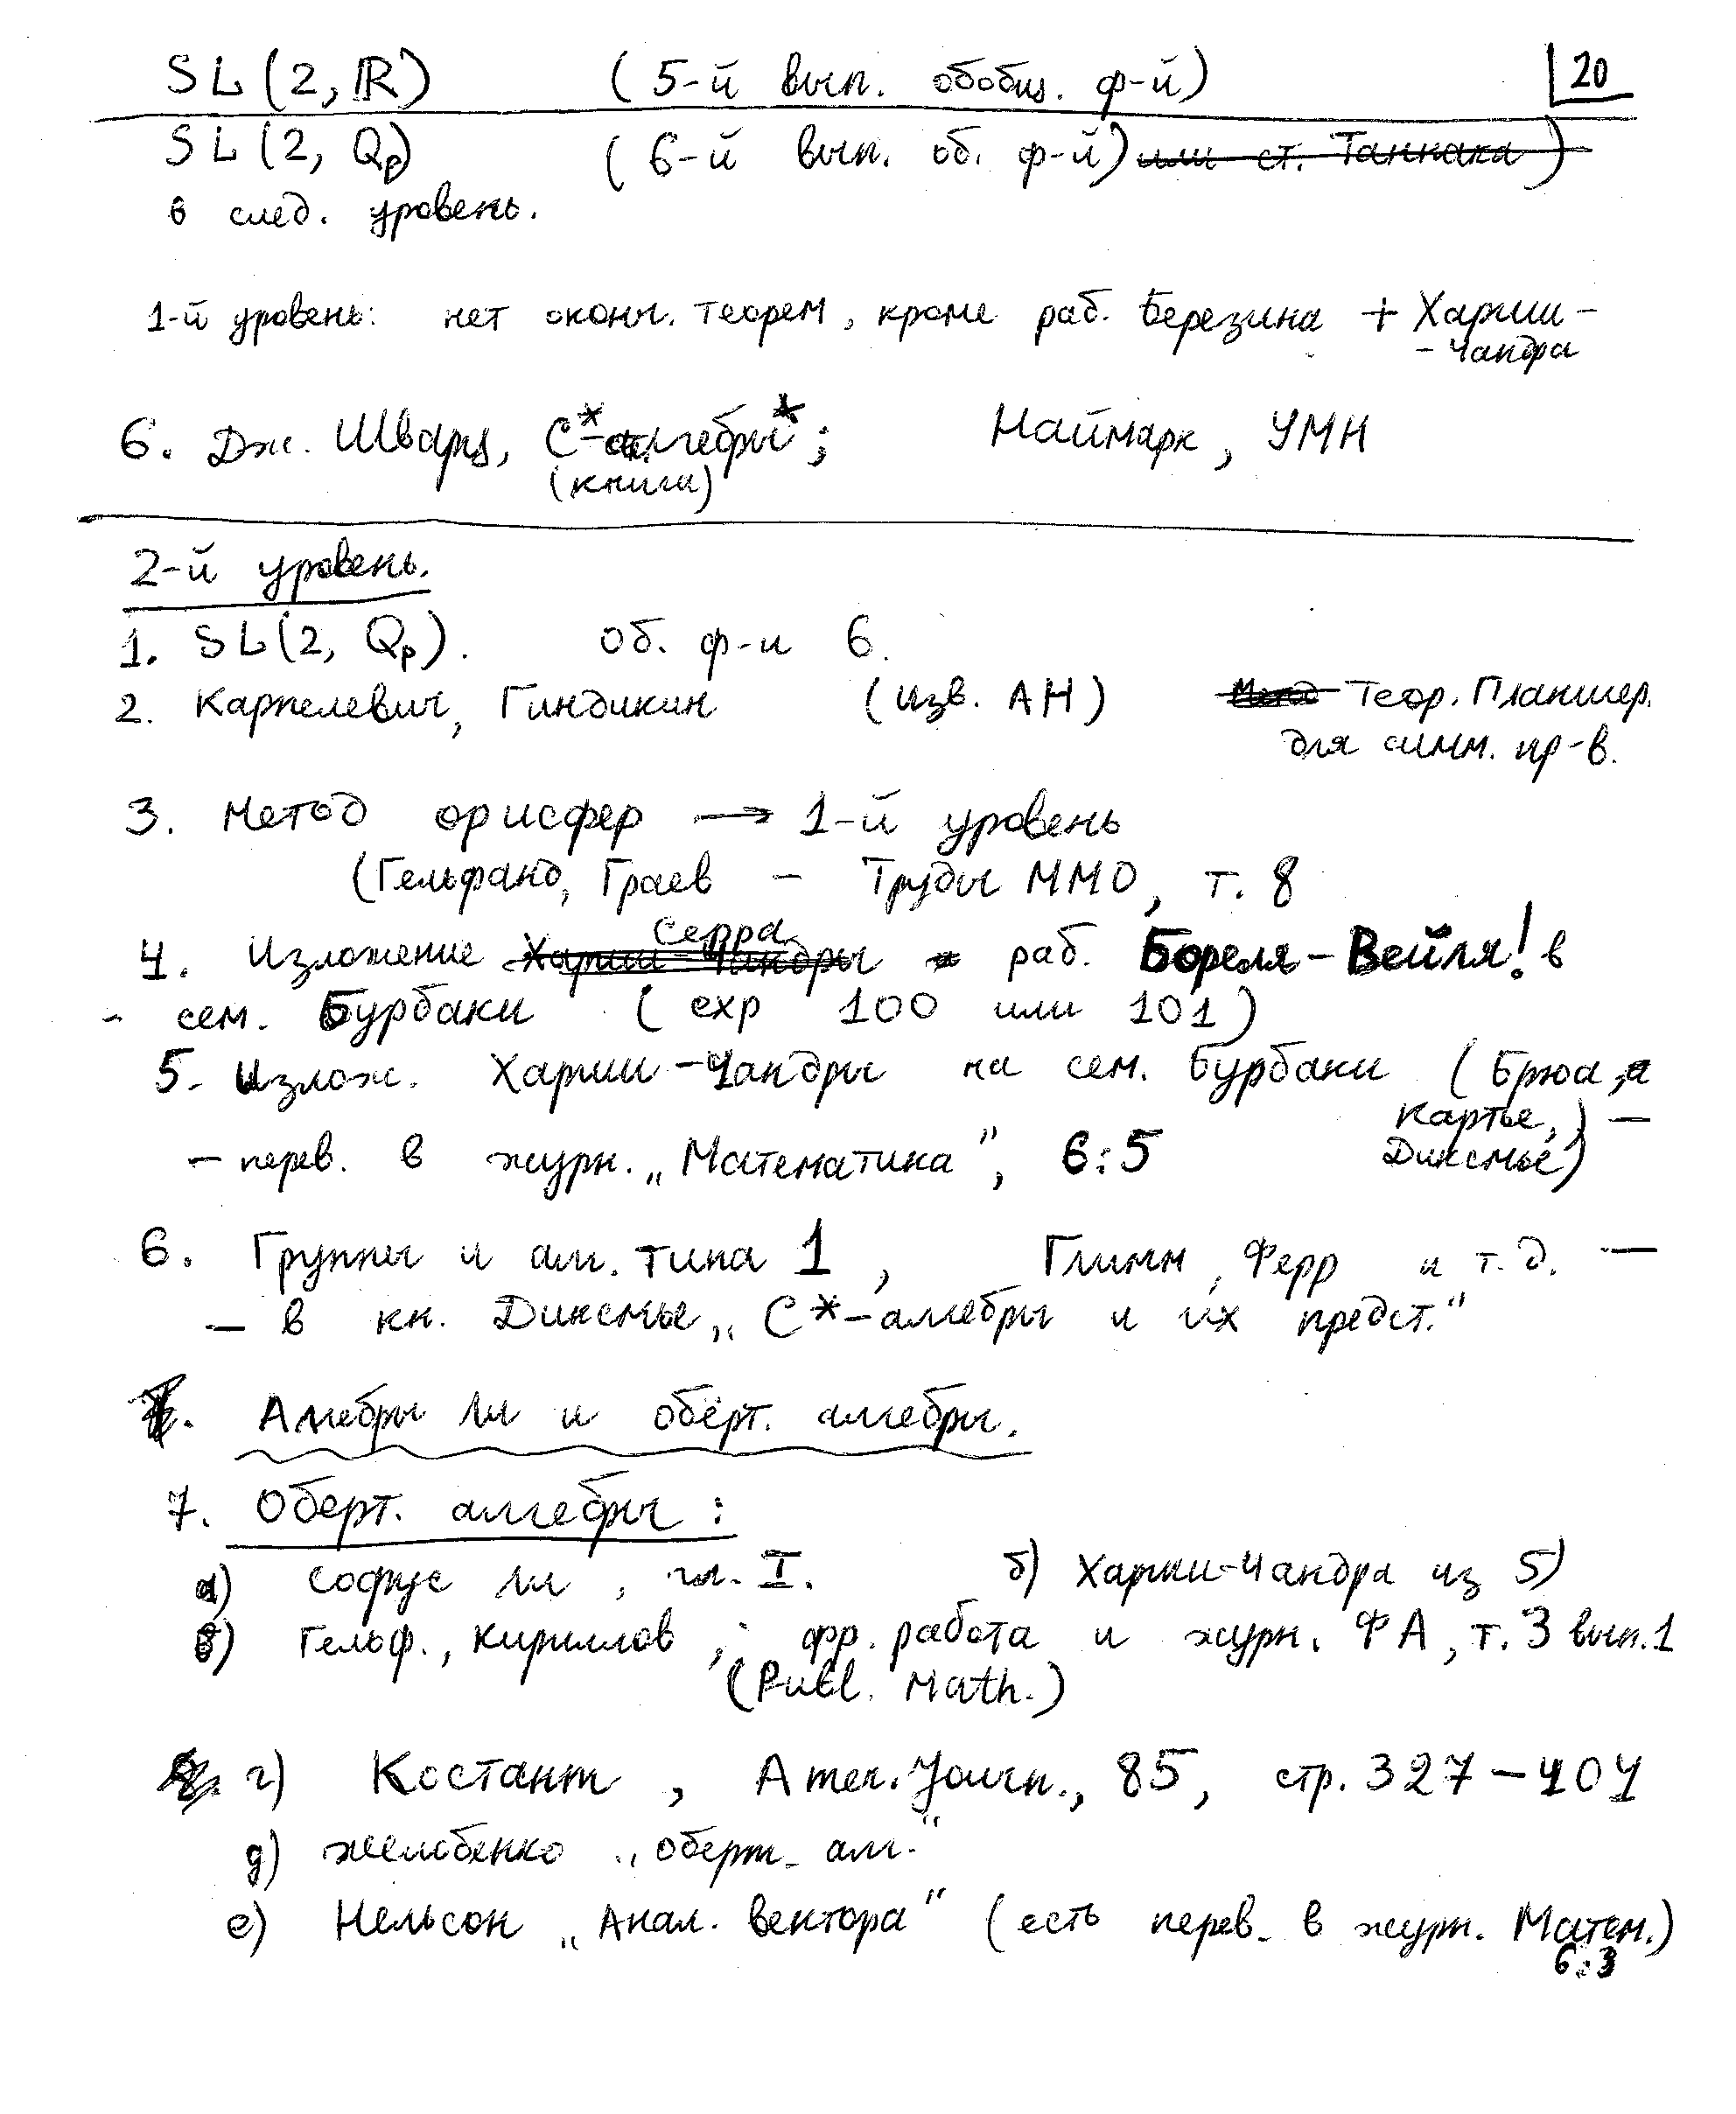 SL(2, ℝ) (5-й вып. обобщ. ф-й) 20
SL(2, Qp) (6-й вып. об. ф-й) или ст. Таннака)
в след. уровень.
1-й уровень: нет оконч. теорем, кроме раб. Березина + Хариш-
-Чандра
6. Дж. Шварц, C*-алгебры*; Наймарк, УМН
(книги)
2-й уровень.
1. SL(2, Qp). Об. ф-и 6.
2. Карпелевич, Гиндикин (Изв. АН) Теор. Планшер.
для симм. пр-в.
3. Метод орисфер → 1-й уровень
(Гельфанд, Граев – Труды ММО, т. 8
4. Изложение Хариш-Чандры Серра раб. Бореля-Вейля! в
- сем. Бурбаки (exp 100 или 101)
5. Излож. Хариш-Чандры на сем. Бурбаки (Брюа,
Картье,) —
Диксмье)
– перев. в журн. „Математика”, 6:5
6. Группы и алг. типа 1, Глимм, Ферр и т.д. —
— в кн. Диксмье, „C*-алгебры и их предст.“
Алгебры Ли и обёрт. алгебры.
7. Оберт. алгебры:
а) Софус Ли, гл. I. б) Хариш-Чандра из 5)
в) Гельф., Кириллов, фр. работа и журн. ФА, т. 3 вып. 1
(Publ. Math.)
г) Костант, Amer. Journ., 85, стр. 327–404
д) Желобенко „Оберт. алг.“
е) Нельсон „Анал. вектора“ (есть перев. в журн. Матем.)
6:3